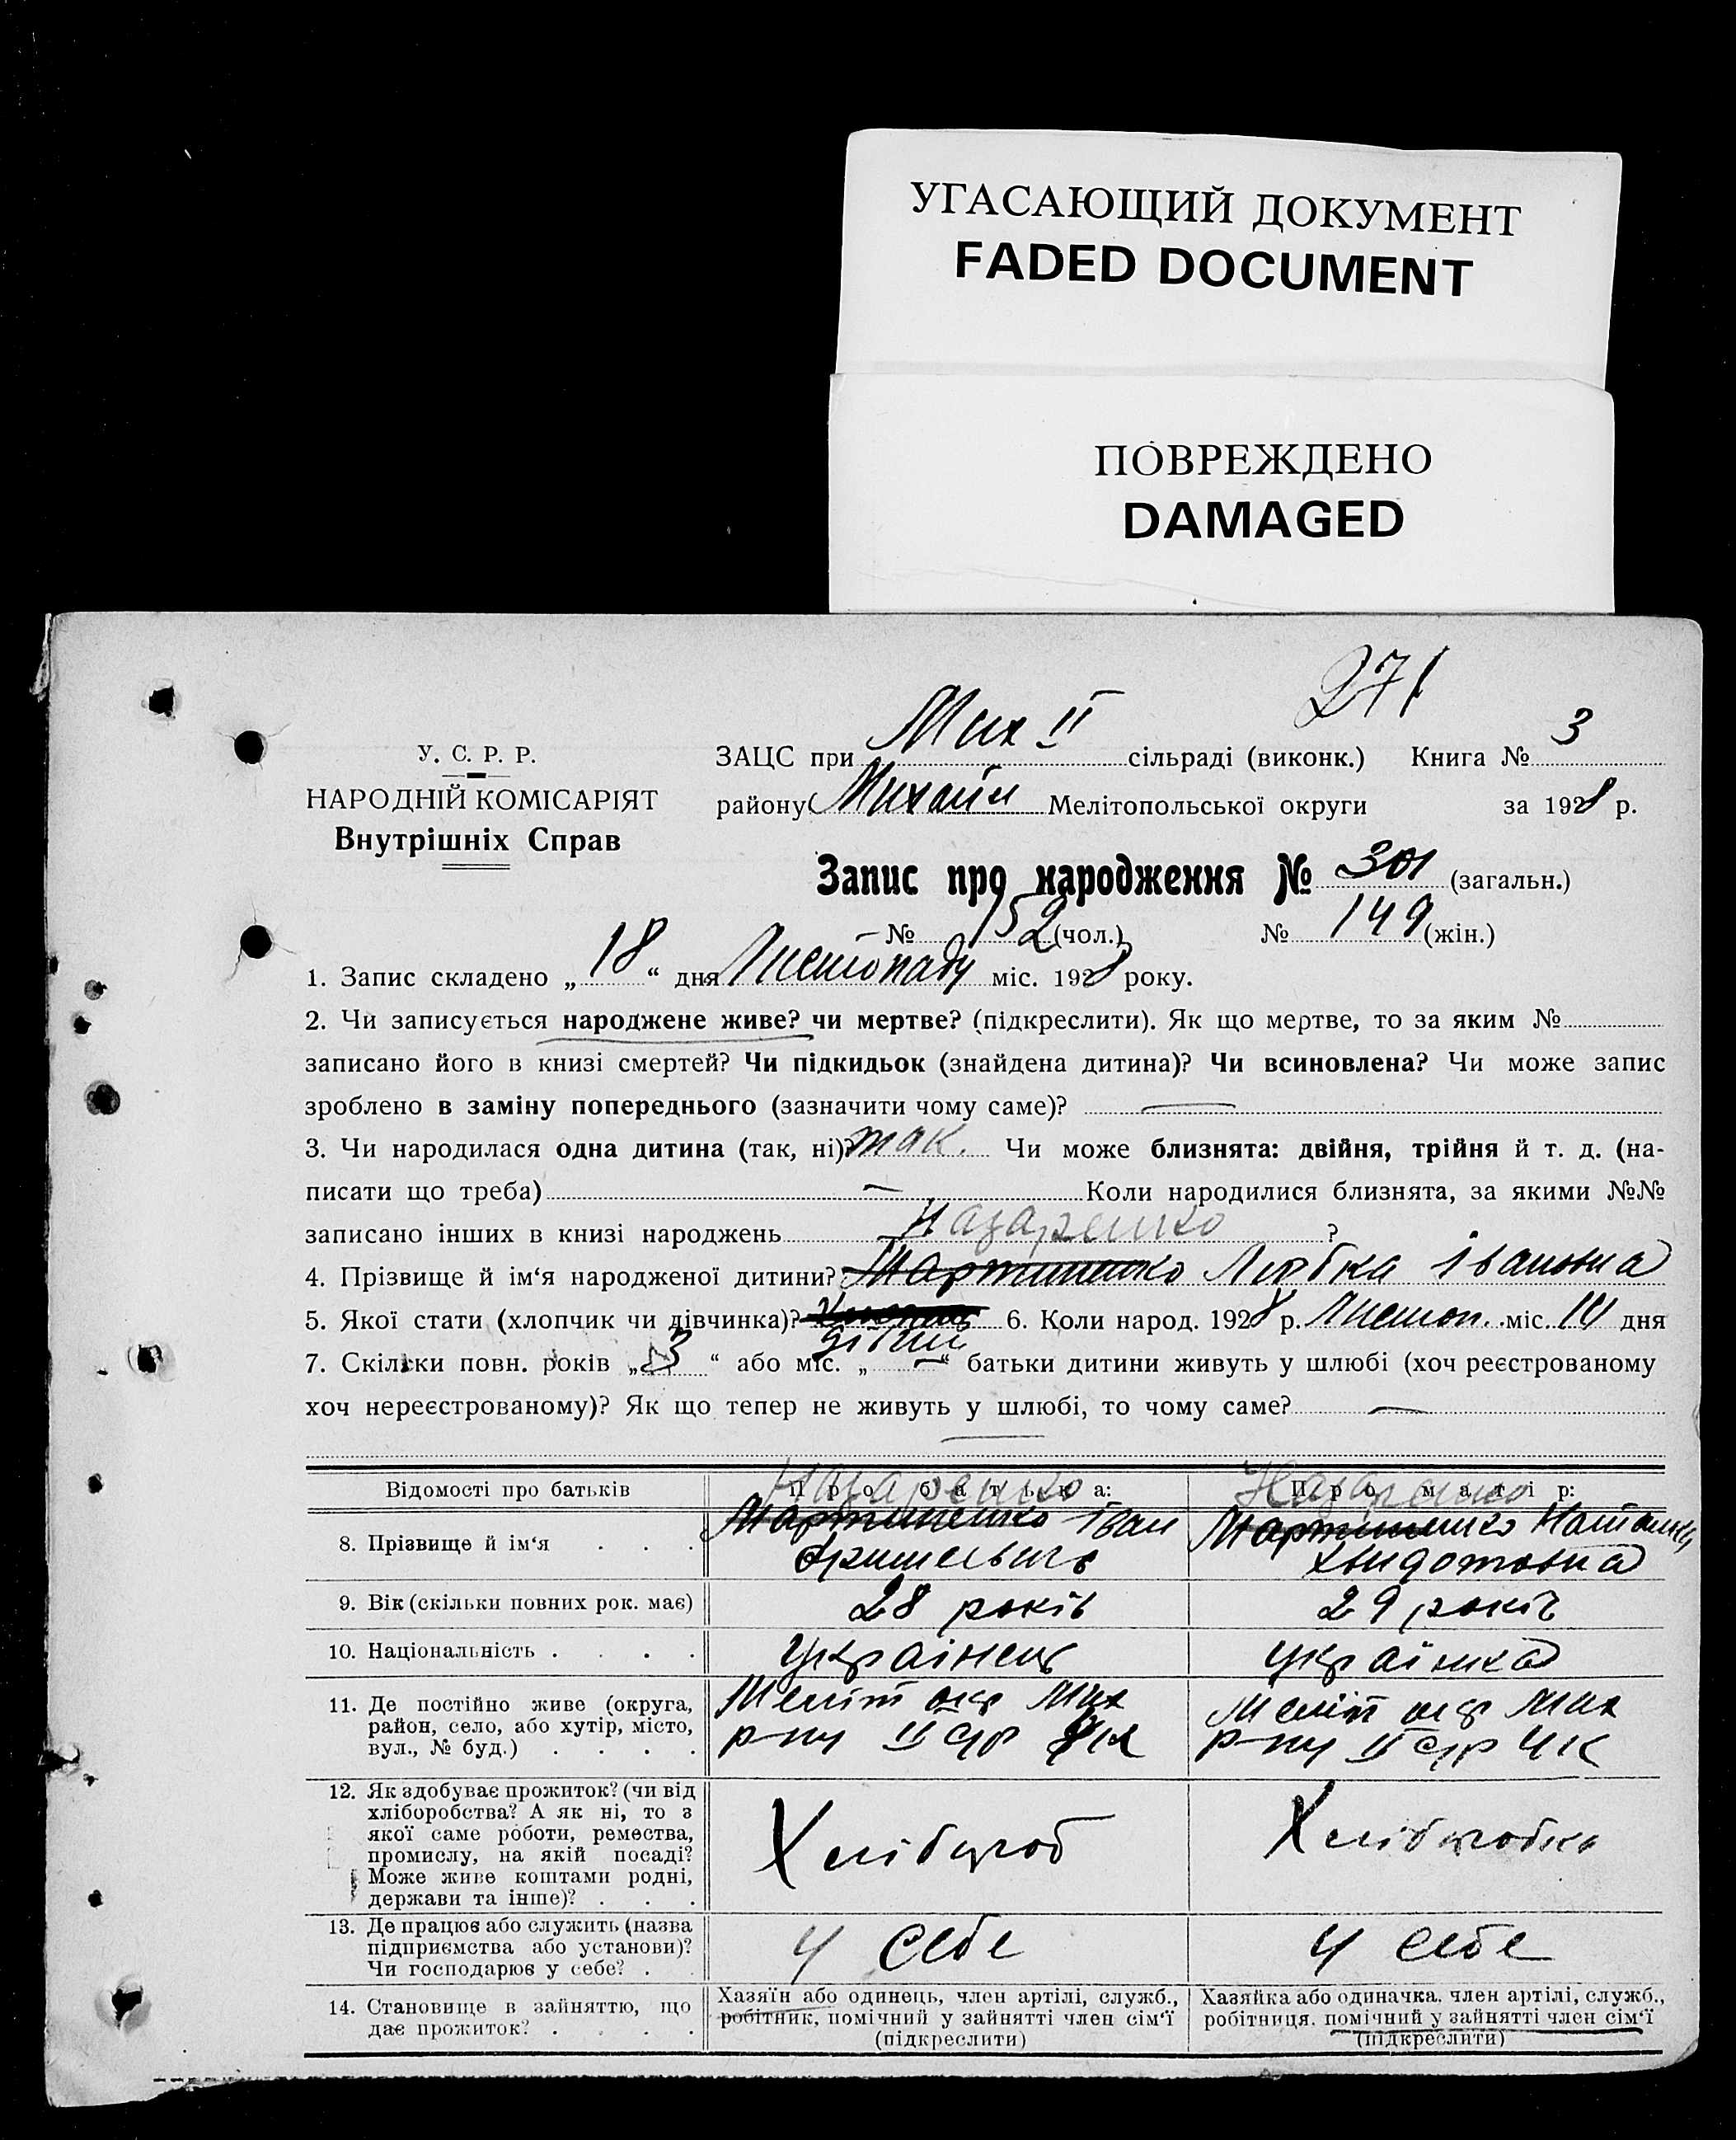 УГАСАЮЩИЙ ДОКУМЕНТ
FADED DOCUMENT
ПОВРЕЖДЕНО
DAMAGED
271
У. С. Р. Р.
НАРОДНІЙ КОМІСАРІЯТ
Внутрішніх Справ
ЗАЦС при Мих II сільраді (виконк.) Книга № 3
району Михайл Мелітопольської округи за 1928 р.
Запис про народження № 301 (загальн.)
№ 152 (чол.) № 149 (жін.)
1. Запис складено „ 18 “ дня Листопаду міс. 1928 року.
2. Чи записується народжене живе? чи мертве? (підкреслити). Як що мертве, то за яким №
записано його в книзі смертей? Чи підкидьок (знайдена дитина)? Чи всиновлена? Чи може запис
зроблено в заміну попереднього (зазначити чому саме)? —
3. Чи народилася одна дитина (так, ні)? так. Чи може близнята: двійня, трійня й т. д. (на-
писати що треба) — Коли народилися близнята, за якими №№
записано інших в книзі народжень ?
Назаренко
4. Прізвище й ім‘я народженої дитини? Мартиненко Любка Івановна
5. Якої стати (хлопчик чи дівчинка)? 6. Коли народ. 1928 р. Листоп. міс. 14 дня
7. Скільки повн. років „ 3 “ або міс. „ — “ батьки дитини живуть у шлюбі (хоч реєстрованому
хоч нереєстрованому)? Як що тепер не живуть у шлюбі, то чому саме? —
Відомості про батьків
Про батька:
Про матір:
8. Прізвище й ім‘я . . .
Назаренко
Мартиненко Іван
Назаренко
Мартиненко
9. Вік (скільки повних рок. має)
28 років
29 років
10. Національність . . . .
українець
українка
11. Де постійно живе (округа,
район, село, або хутір, місто,
вул., № буд.) . . . .
Меліт окр Мих
р-ну II
Меліт окр Мих
р-ну II
12. Як здобуває прожиток? (чи від
хліборобства? А як ні, то з
якої саме роботи, ремества,
промислу, на якій посаді?
Може живе коштами родні,
держави та інше)? . . .
Хлібороб
Хліборобка
13. Де працює або служить (назва
підприємства або установи)?
Чи господарює у себе? .
У себе
У себе
14. Становище в зайняттю, що
дає прожиток? . . . .
Хазяїн або одинець, член артілі, служб.,
робітник, помічний у зайнятті член сім‘ї
(підкреслити)
Хазяйка або одиначка. член артілі, служб.,
робітниця. помічний у зайнятті член сім‘ї
(підкреслити)